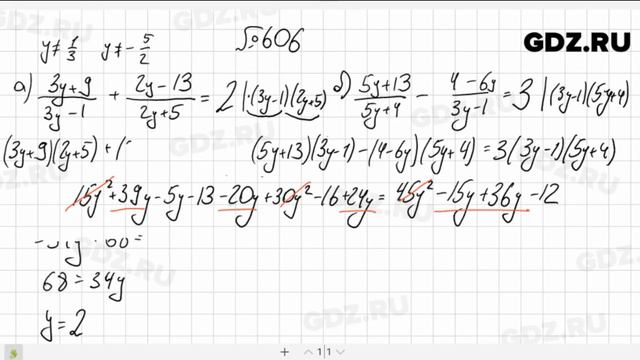 y≠1/3 y≠-5/2 №606 GDZ.RU
а) (3y+9)/(3y-1) + (2y-13)/(2y+5) = 2 |·(3y-1)(2y+5)
б) (5y+13)/(5y+4) - (4-6y)/(3y-1) = 3 |(3y-1)(5y+4)
(3y+9)(2y+5)+(
(5y+13)(3y-1)-(4-6y)(5y+4)=3(3y-1)(5y+4)
15y²+39y-5y-13-20y+30y²-16+24y=45y²-15y+36y-12
68=34y
y=2
1|1